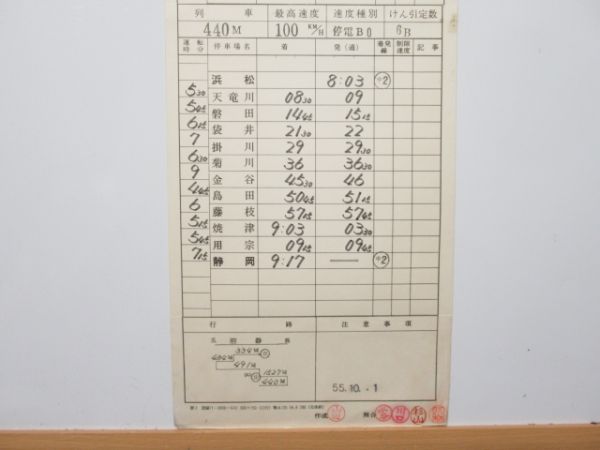 列 車 最高速度 速度種別 けん引定数
440M 100 KM/H 停電B0 6B
運転時分 停車場名 着 発(通) 着発線 制限速度 記事
浜松 8:03 ②
530 天竜川 0830 09
545 磐田 1445 1515
615 袋井 2130 22
7 掛川 29 2930
630 菊川 36 3630
9 金谷 4530 46
445 島田 5045 5115
6 藤枝 5715 5745
515 焼津 9:03 0330
545 用宗 0915 0945
715 静岡 9:17 ― ②
行 路 注 意 事 項
491M
440M
55.10.-1
作成 照合